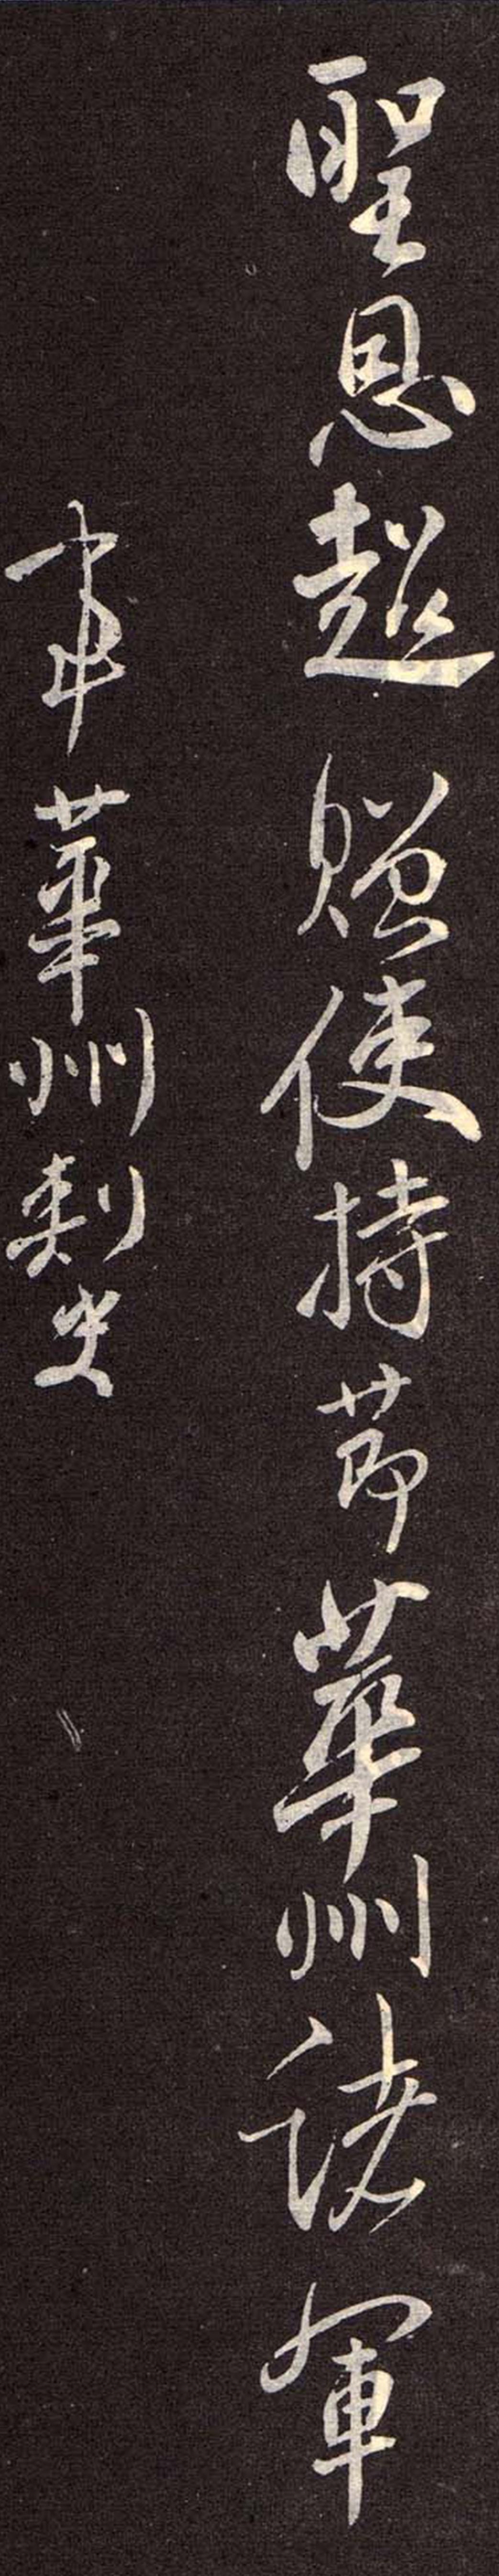 聖恩超贈使持節華州諸軍
事華州刺史